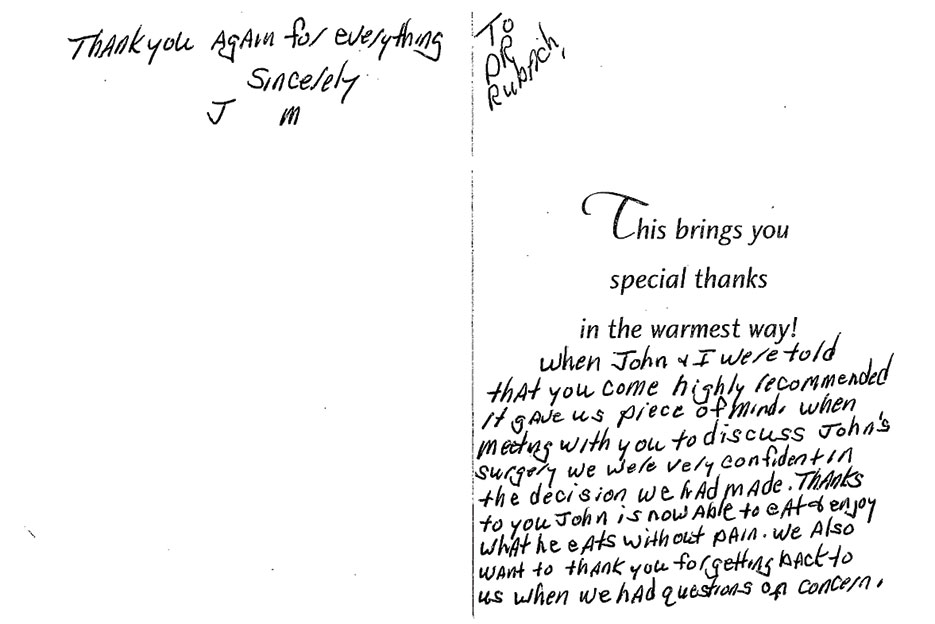 Thank you Again for everything
Sincerely
J M
To
DR
Rubach,
This brings you
special thanks
in the warmest way!
When John & I were told
that you come highly recommended
it gave us piece of mind. when
meeting with you to discuss John's
surgery we were very confident in
the decision we had made. Thanks
to you John is now Able to eat & enjoy
what he eats without pain. we Also
want to thank you for getting back to
us when we had questions of concern.